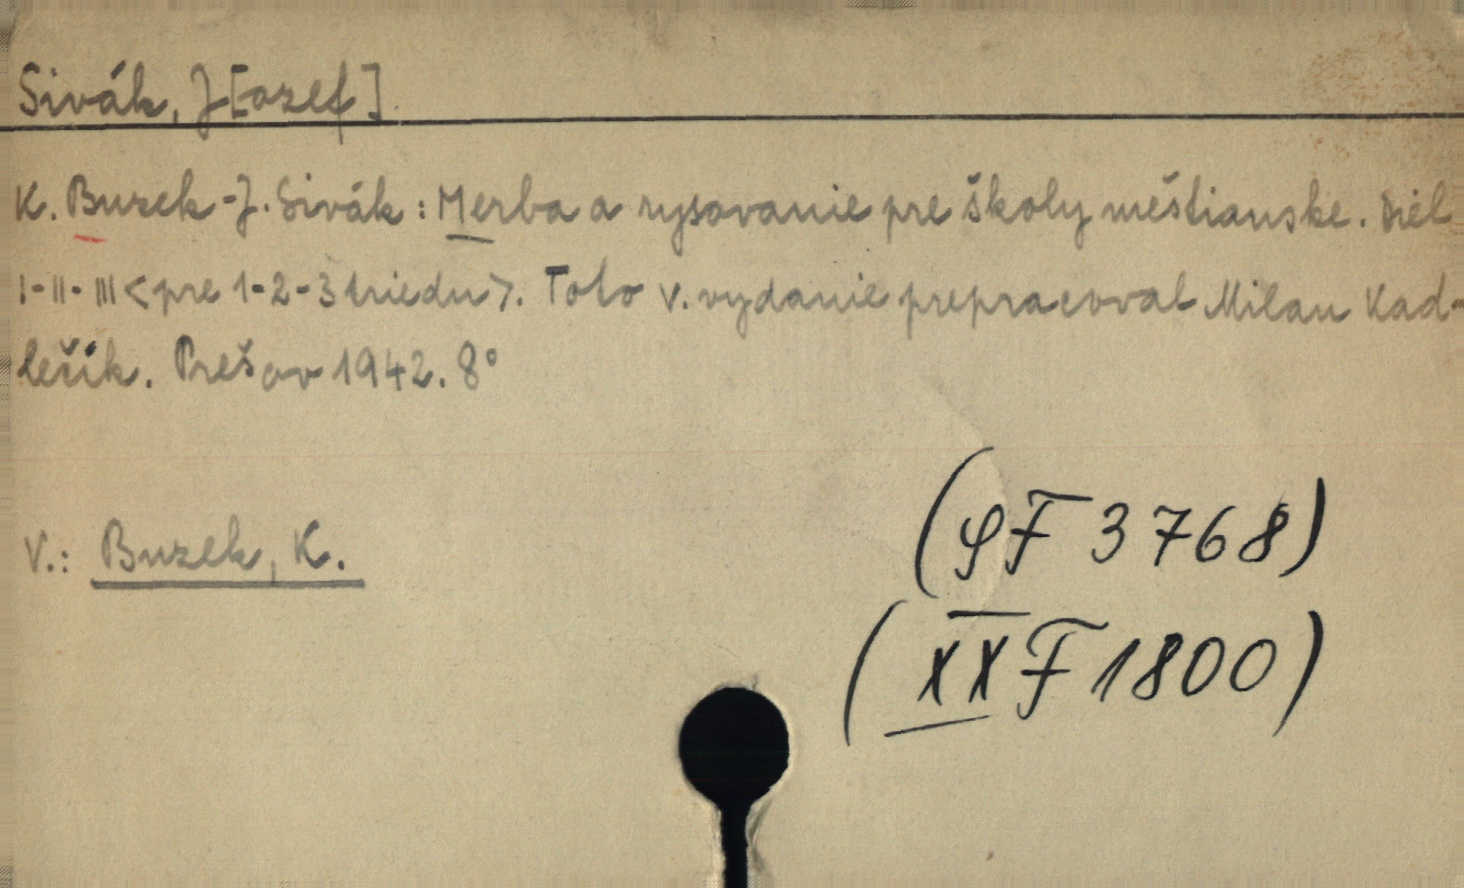 Sivák, J[ozef].
K. Buzek-J. Sivák: Merba a rysovanie pre školy meštianske. Diel
I-II-III <pre 1-2-3 triedu>. Toto V. vydanie prepracoval Milan Kad-
lečík. Prešov 1942. 8°
V.: Buzek, K.
(φF 3768)
(XXF 1800)